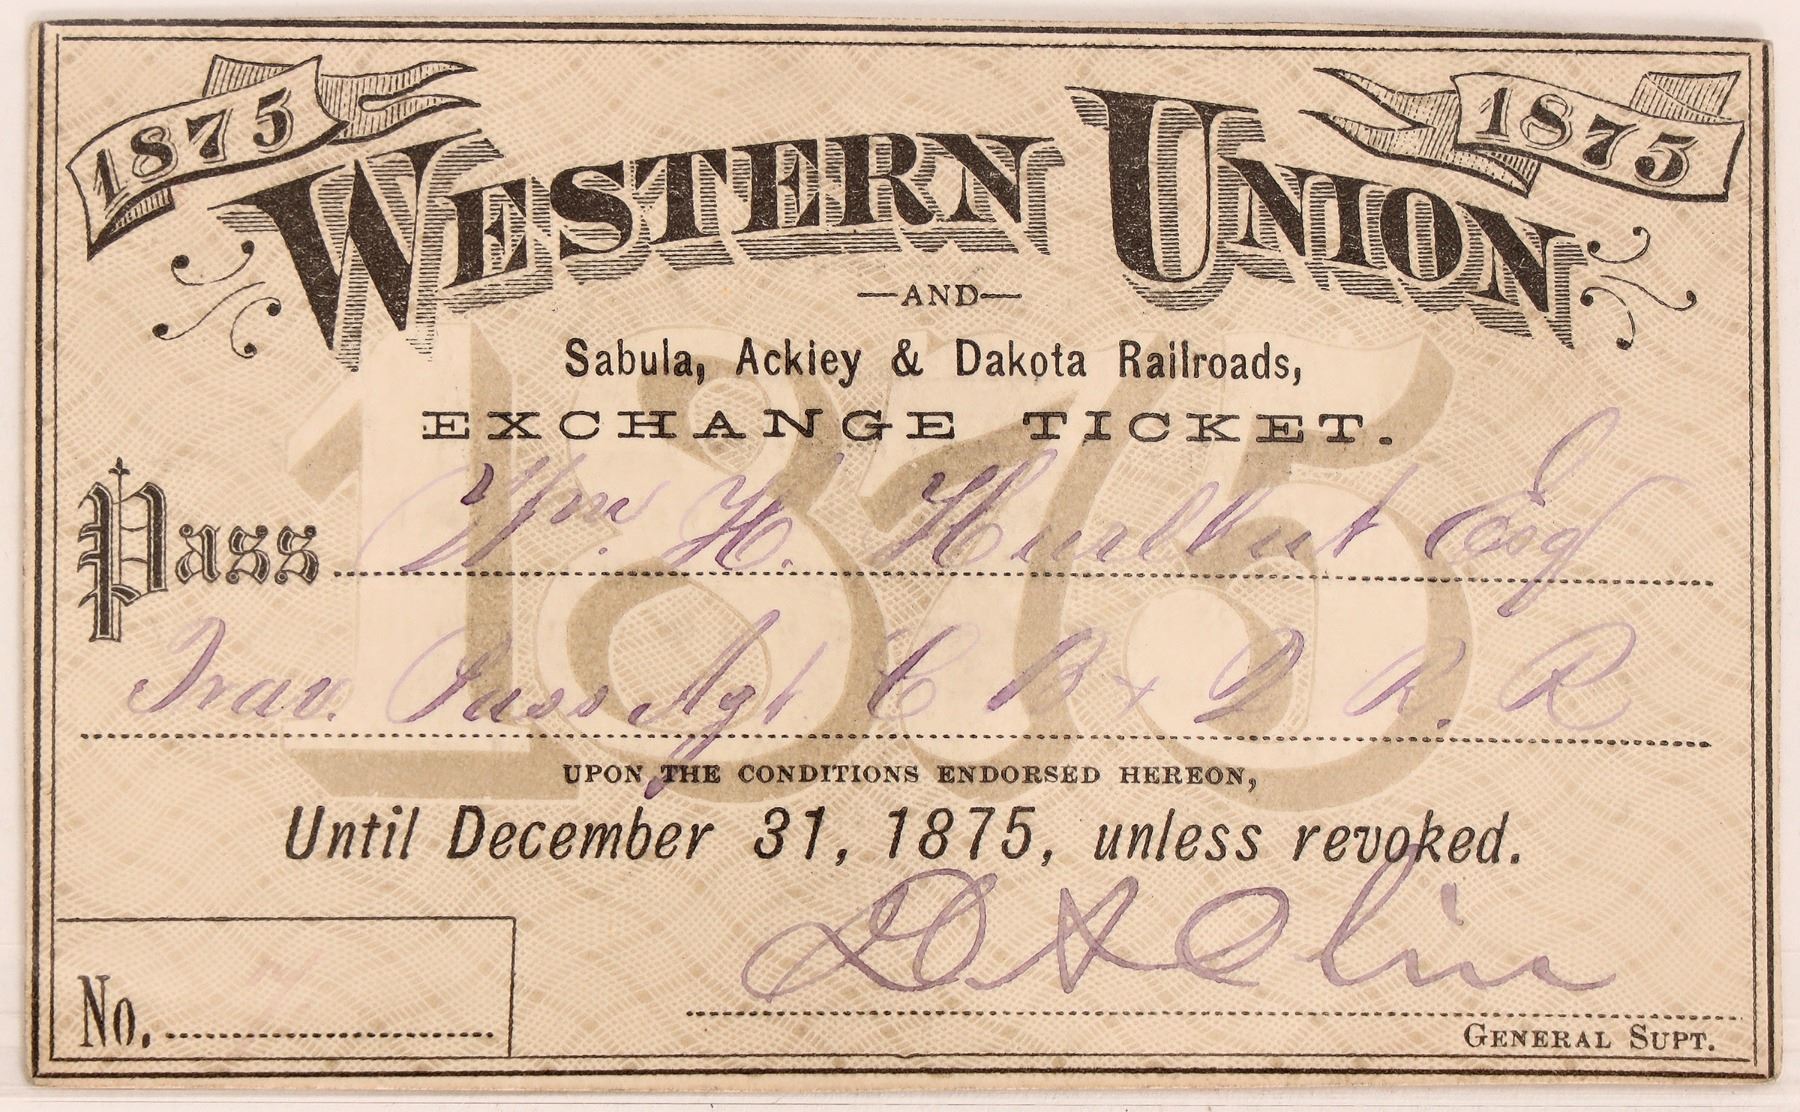 1875 1875
WESTERN UNION
—AND—
Sabula, Ackiey & Dakota Railroads,
EXCHANGE TICKET.
1875
Pass Wm. H. Hurlbut Esq
Trav. Pass Agt. C B & Q R. R
UPON THE CONDITIONS ENDORSED HEREON,
Until December 31, 1875, unless revoked.
D A Olin
No.
GENERAL SUPT.